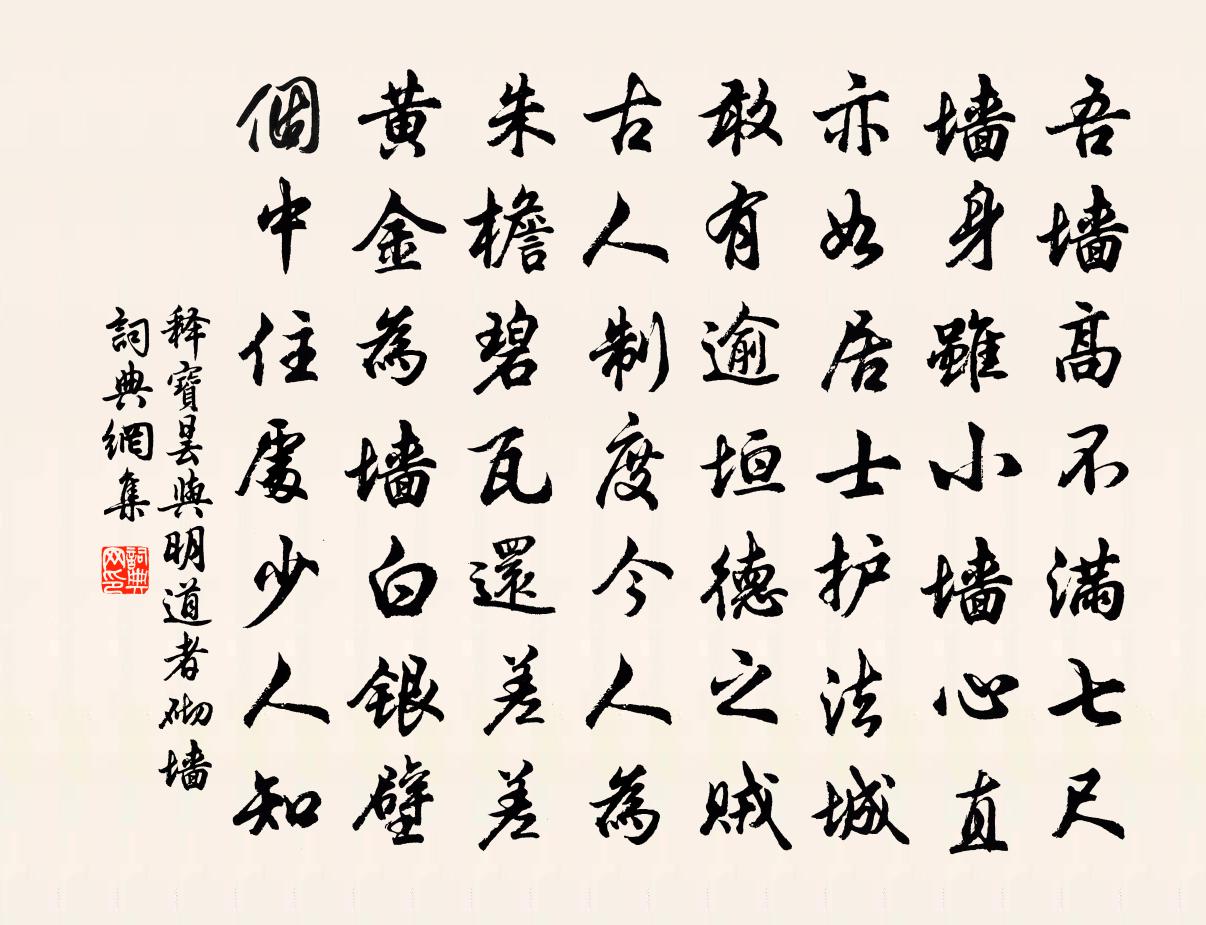 吾墙高不满七尺
墙身雖小墙心直
亦如居士护法城
敢有逾垣德之贼
古人制度今人為
朱檐碧瓦還差差
黄金為墙白銀壁
個中住處少人知
释寶昙與明道者砌墙
詞典網集
詞典网印